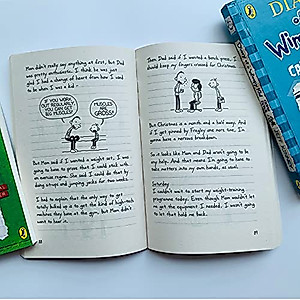 Mom didn't really say anything at first, but Dad
was pretty enthusiastic. I think he was just
glad I had a change of heart from how I used
to be when I was a kid -
IF YOU WORK
OUT REGULARLY,
YOU CAN GET
BIG MUSCLES!
MUSCLES
ARE
GROSS!
But Mom said if I wanted a weight set, I was
going to have to prove that I could stick with
an exercise regime. She said I could do that by
doing sit-ups and jumping jacks for two weeks.
I had to explain that the only way to get
totally bulked up is to get the kind of high-tech
machines they have at the gym, but Mom didn't
want to hear it.
Then Dad said if I wanted a bench press, I
should keep my fingers crossed for Christmas.
But Christmas is a month and a half away. And
if I get pinned by Fregley one more time, I'm
gonna have a nervous breakdown.
So it looks like Mom and Dad aren't going to
be any help. And that means I'm going to have
to take matters into my own hands, as usual.
Saturday
I couldn't wait to start my weight-training
programme today. Even though Mom wouldn't
let me get the equipment I needed, I wasn't going
to let that hold me back.
DIA
Wim